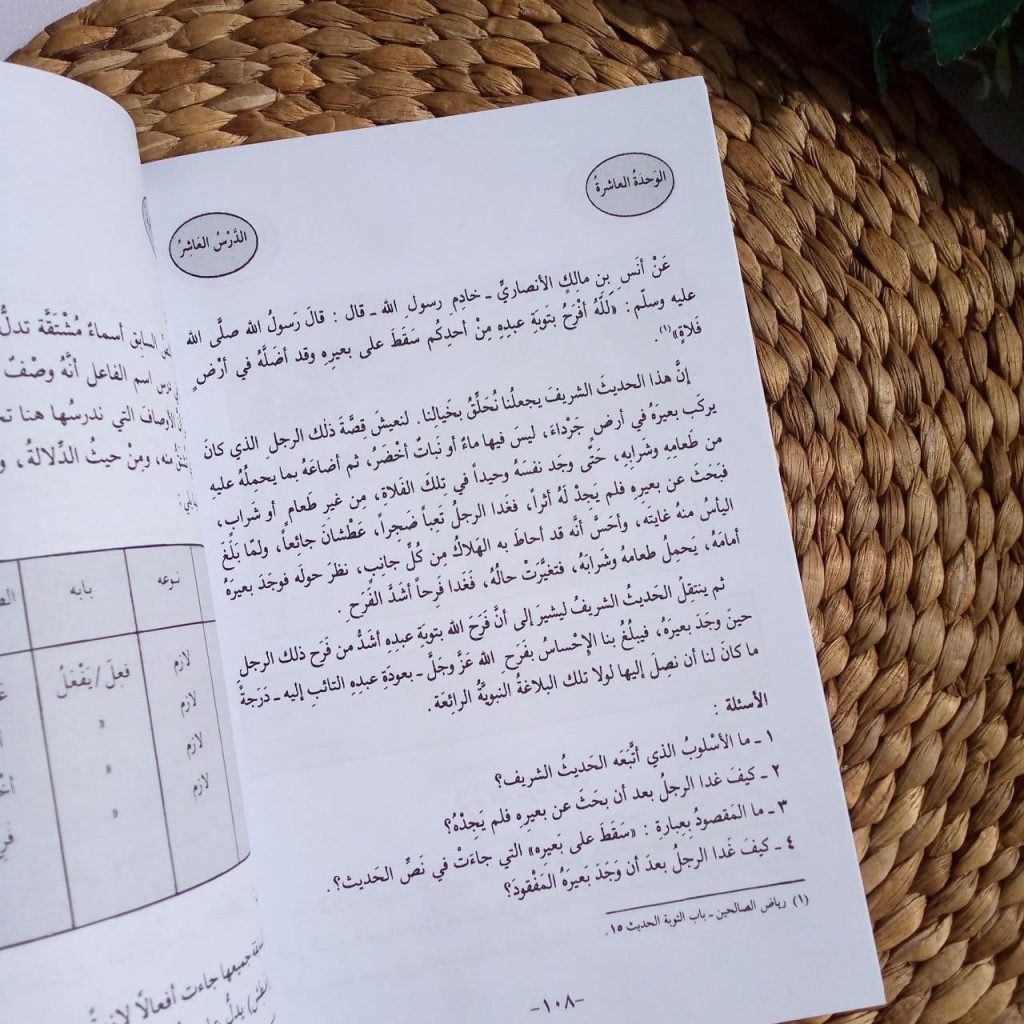 الوَحدَةُ العاشرةُ
الدَّرْسُ العَاشِرُ
عَنْ أنَس بنِ مالِكٍ الأنصاريِّ ـ خادِمِ رسولِ الله ـ قال : قالَ رَسولُ الله صلَّى الله
عليه وسلّم: «لَلَّهُ أفْرَحُ بتوبَةِ عبدِهِ مِنْ أحدِكُم سَقَطَ على بعيرِهِ وقد أضلَّهُ في أرْضٍ
فَلاةٍ»(١).
إنَّ هذا الحديثَ الشريفَ يجعلُنا نُحَلِّقُ بخَيالنا. لنعيشَ قصَّةَ ذلك الرجلِ الذي كانَ
يركَب بعيرَهُ في أرضٍ جَرْداءَ، ليسَ فيها ماءٌ أو نَباتٌ أخْضَرُ، ثم أضاعَهُ بما يحمِلُهُ عليهِ
من طَعامِهِ وشَرابِهِ، حَتَّى وجَد نفسَهُ وحيداً في تِلكَ الفَلاةِ، مِن غير طَعام أو شَرابٍ،
فبَحَثَ عن بعيرِهِ فلم يَجِدْ لَهُ أثراً، فغَدا الرجلُ تَعِباً ضَجراً، عَطْشانَ جائعاً، ولمّا بَلَغَ
اليأسُ منهُ غايتَه، وأحسَّ أنَّه قد أحاطَ به الهَلاكُ مِن كُلِّ جانِبٍ، نظرَ حولَه فوجَدَ بعيرَهُ
أمامَهُ، يَحمِلُ طعامهُ وشَرابَهُ، فتغيَّرَتْ حالُهُ، فغَدا فَرِحاً أشدَّ الفَرَحِ.
ثم ينتقِلُ الحديثُ الشريفُ ليشيرَ إلى أنَّ فَرَحَ الله بتوبَةِ عبدِهِ أشدُّ من فَرَحِ ذلك الرجلِ
حينَ وجَدَ بعيرَهُ، فيبلُغُ بنا الإحْساسُ بفَرَحِ الله عَزَّ وجَلَّ ـ بعودَةِ عبدِهِ التائبِ إليه ـ دَرَجةً
ما كانَ لنا أن نصِلَ إليها لولا تلك البلاغةُ النبويَّةُ الرائِعَة.
الأسئلة :
١ ـ ما الأسْلوبُ الذي اتَّبَعَه الحَديثُ الشريف؟
٢ ـ كيفَ غدا الرجلُ بعد أن بحَثَ عن بعيرِهِ فلم يَجِدْهُ؟
٣ ـ ما المَقصودُ بِعِبارةِ : «سَقَطَ على بَعيرِه» التي جاءَتْ في نَصِّ الحَديث؟.
٤ ـ كيفَ غَدا الرجلُ بعدَ أن وجَدَ بَعيرَهُ المَفْقودَ؟
(١) رياض الصالحين ـ باب التوبة الحديث ١٥.
-١٠٨-
السابق أسماءٌ مُشْتقَّة تدلُّ
درس اسم الفاعل أنَّهُ وصْفٌ
الأوصافَ التي ندرسُها هنا
منه، ومِنْ حيثُ الدِّلالةُ،
نوعه بابه
لازم فَعِلَ / يَفْعَلُ
لازم »
لازم »
لازم »
جميعها جاءت أفعالًا